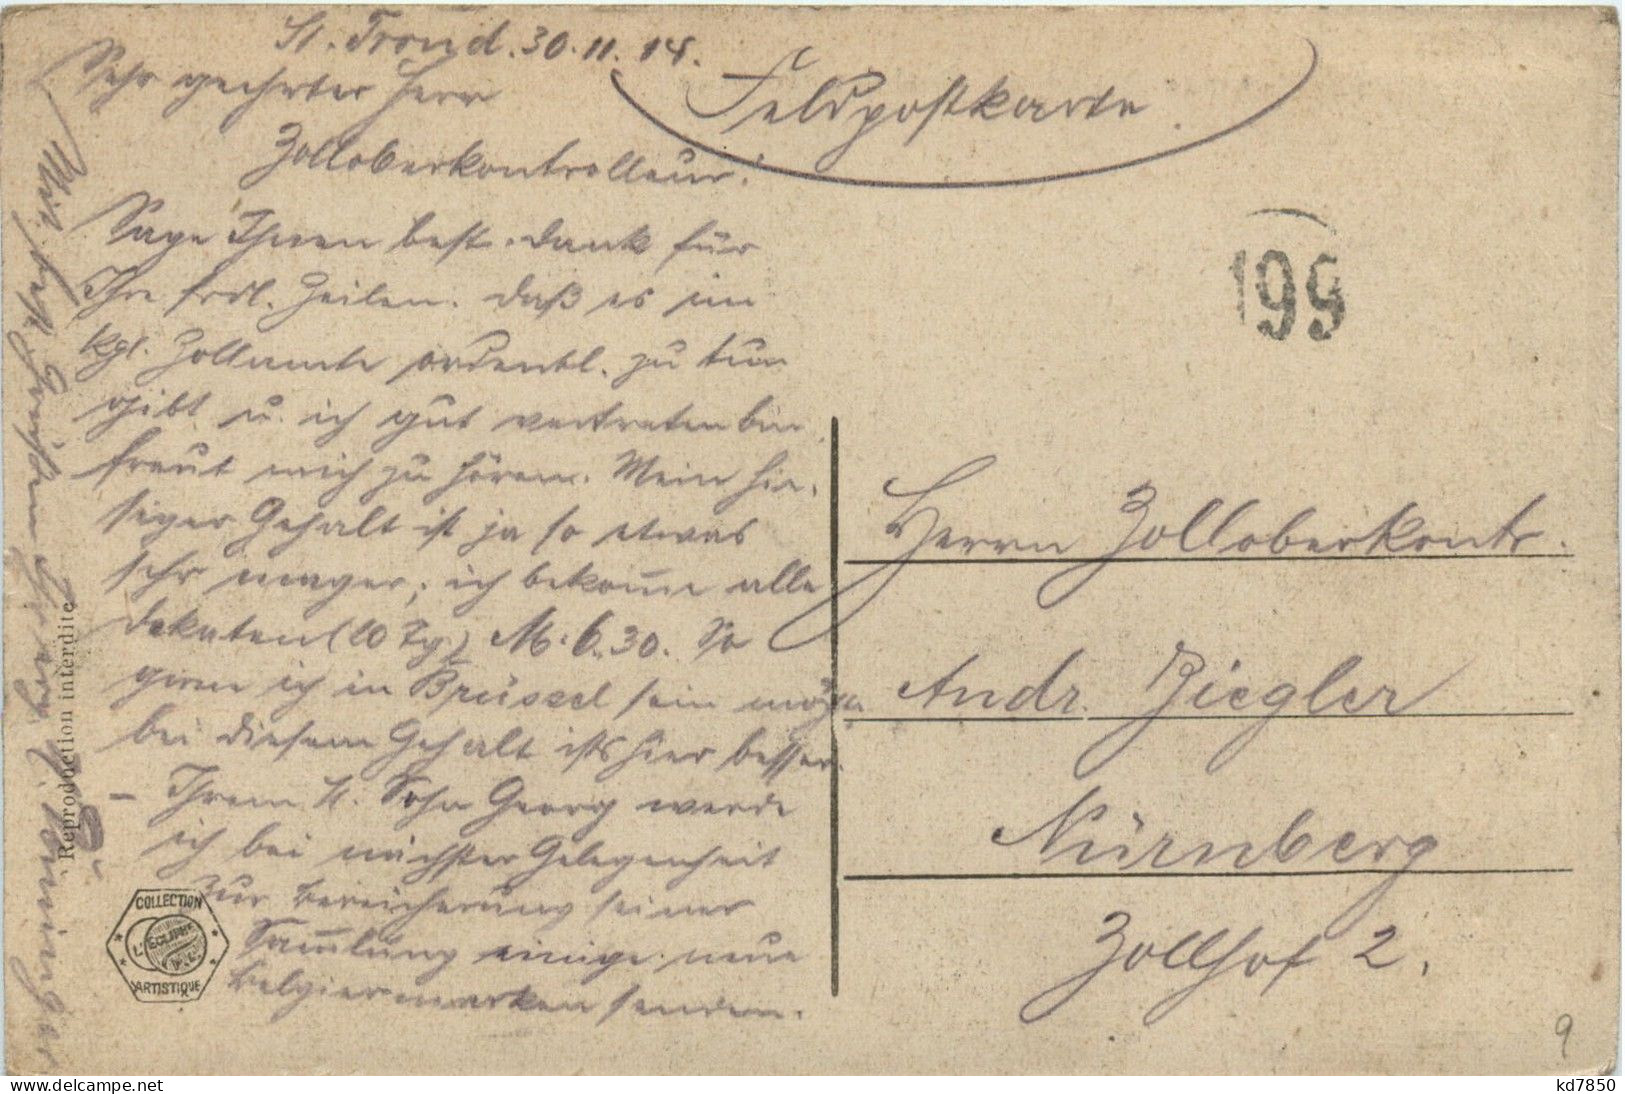 St. Trond. 30.11.14.
Sehr geehrter Herr
Zolloberkontrolleur!
Sage Ihnen best. Dank für
Ihre frdl. Zeilen. Daß es im
kgl. Zollamte ordentl. zu tun
gibt u. ich gut vertreten bin,
freut mich zu hören. Mein hie-
siger Gehalt ist ja so etwas
sehr mager; ich bekom̅e alle
Dekaten (10 Tg) M. 6.30. So
gern ich in Brüssel sein möge
bei diesem Gehalt ists hier besser.
– Ihrem H. Sohn Georg werde
ich bei nächster Gelegenheit
zur Bereicherung seiner
Sam̅lung einige neue
Belgiermarken senden.
Mit besten Grüßen Ihr erg.
Feldpostkarte
199
Herrn Zolloberkontr.
Andr. Ziegler
Nürnberg
Zollhof 2.
Reproduction interdite
COLLECTION
L'ECLIPSE
ARTISTIQUE
9
kd7850